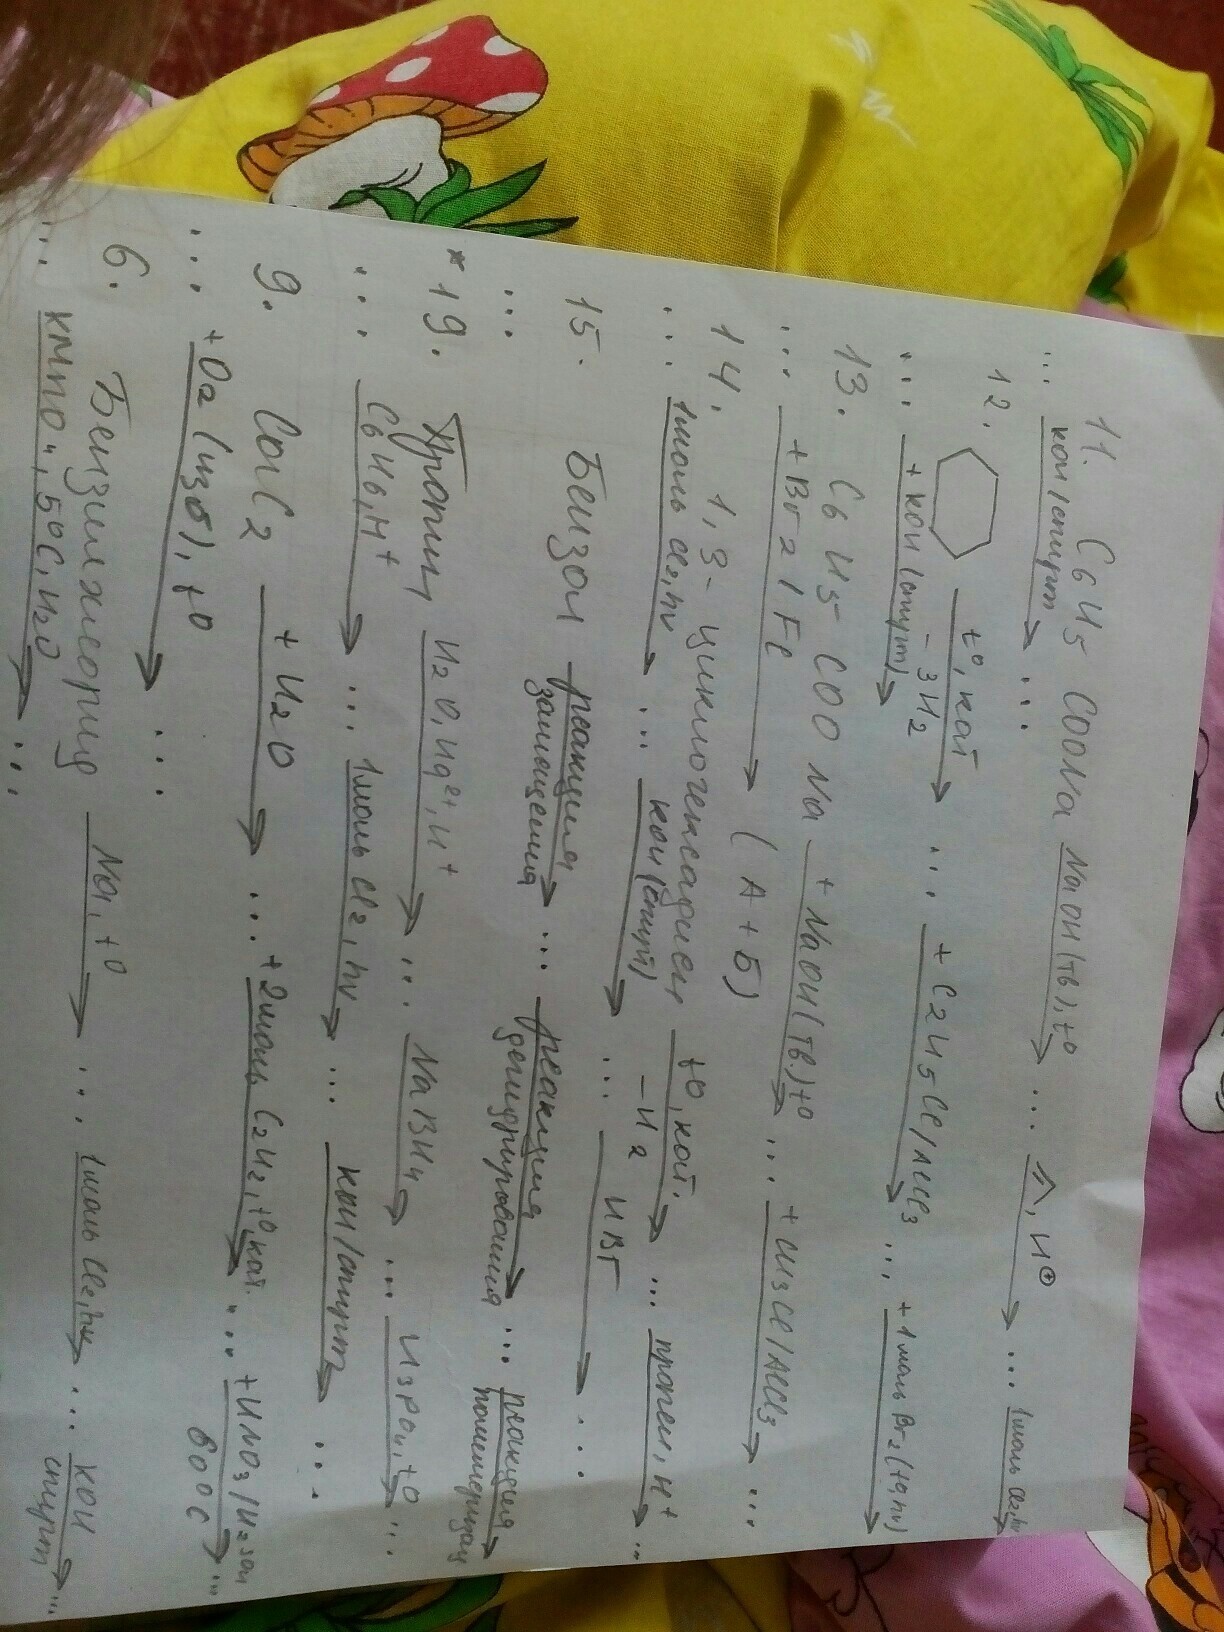 11. C6H5COONa NaOH(тв), t° ... , H⊕ ... 1моль Cl2, hν
... KOH/спирт ...
12. t°, кат -3H2 ... + C2H5Cl/AlCl3 ... + 1моль Br2 (t°, hν)
... + KOH (спирт)
13. C6H5-COONa + NaOH(тв.) t° ... + CH3Cl/AlCl3 ...
... + Br2/Fe (А+Б)
14. 1,3-циклогексадиен t°, кат. -H2 ... пропен, H+ ...
... 1моль Cl2, hν ... KOH (спирт) ... HBr ...
15. Бензол реакция замещения ... реакция дегидрирования ... реакция
...
*19. Пропин H2O, Hg2+, H+ ... NaBH4 ... H3PO4, t° ...
... C6H6, H+ ... 1моль Cl2, hν ... KOH/спирт ...
9. CaC2 + H2O ... +2моль C2H2, t°, кат. ... + HNO3/H2SO4 60°C ...
... + O2 (изб), t° ...
6. Na, t° ... 1моль Cl2, hν ... KOH спирт ...
... KMnO4, 5°C, H2O ...